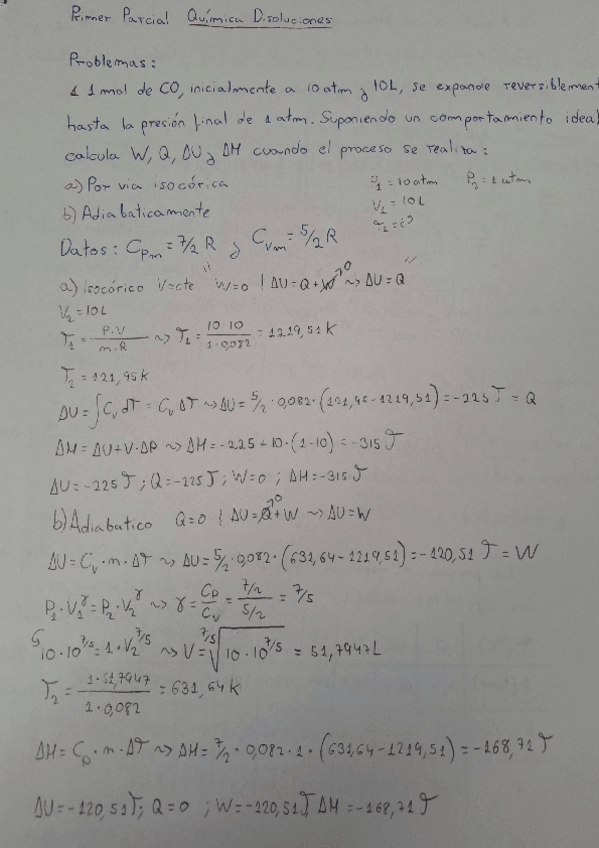 Primer Parcial Química Disoluciones
Problemas:
1 1 mol de CO, inicialmente a 10 atm y 10L, se expande reversiblement
hasta la presión final de 1 atm. Suponiendo un comportamiento ideal
calcula W, Q, ΔU y ΔH cuando el proceso se realiza:
a) Por via isocórica P₁=10atm P₂=1atm
b) Adiabaticamente V₁=10L
T₂=¿?
Datos: Cpm=7/2 R y Cvm=5/2 R
a) isocórico V=cte "W=0 | ΔU=Q+W→0 ⇝ ΔU=Q"
V₂=10L
T₁=P·V/n·R ⇝ T₁=10·10/1·0,082=1219,51K
T₂=121,95K
ΔU=∫CvdT=CvΔT⇝ΔU=5/2·0,082·(121,95-1219,51)=-225J=Q
ΔH=ΔU+V·ΔP ⇝ ΔH=-225+10·(1-10)=-315J
ΔU=-225J; Q=-225J; W=0; ΔH=-315J
b) Adiabatico Q=0 | ΔU=Q→0+W ⇝ ΔU=W
ΔU=Cv·n·ΔT ⇝ ΔU=5/2·0,082·(631,64-1219,51)=-120,51J=W
P₁·V₁^γ=P₂·V₂^γ ⇝ γ=Cp/Cv=7/2/5/2=7/5
10·10^7/5=1·V₂^7/5 ⇝ V=7/5√10·10^7/5=51,7947L
T₂=1·51,7947/1·0,082=631,64K
ΔH=Cp·n·ΔT⇝ΔH=7/2·0,082·1·(631,64-1219,51)=-168,71J
ΔU=-120,51J; Q=0; W=-120,51J ΔH=-168,71J